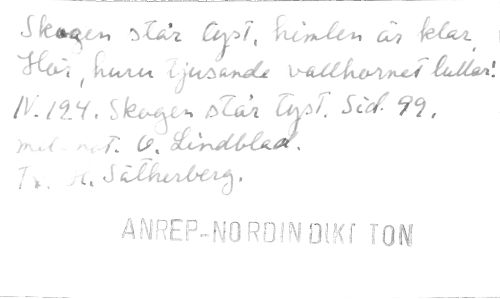 Skogen står tyst, himlen är klar
Hör, huru tjusande vallhornet lullar!
IV. 194. Skogen står tyst. Sid. 99.
mel. not. O. Lindblad.
Tx. H. Sätherberg.
ANREP-NORDIN DIKT TON